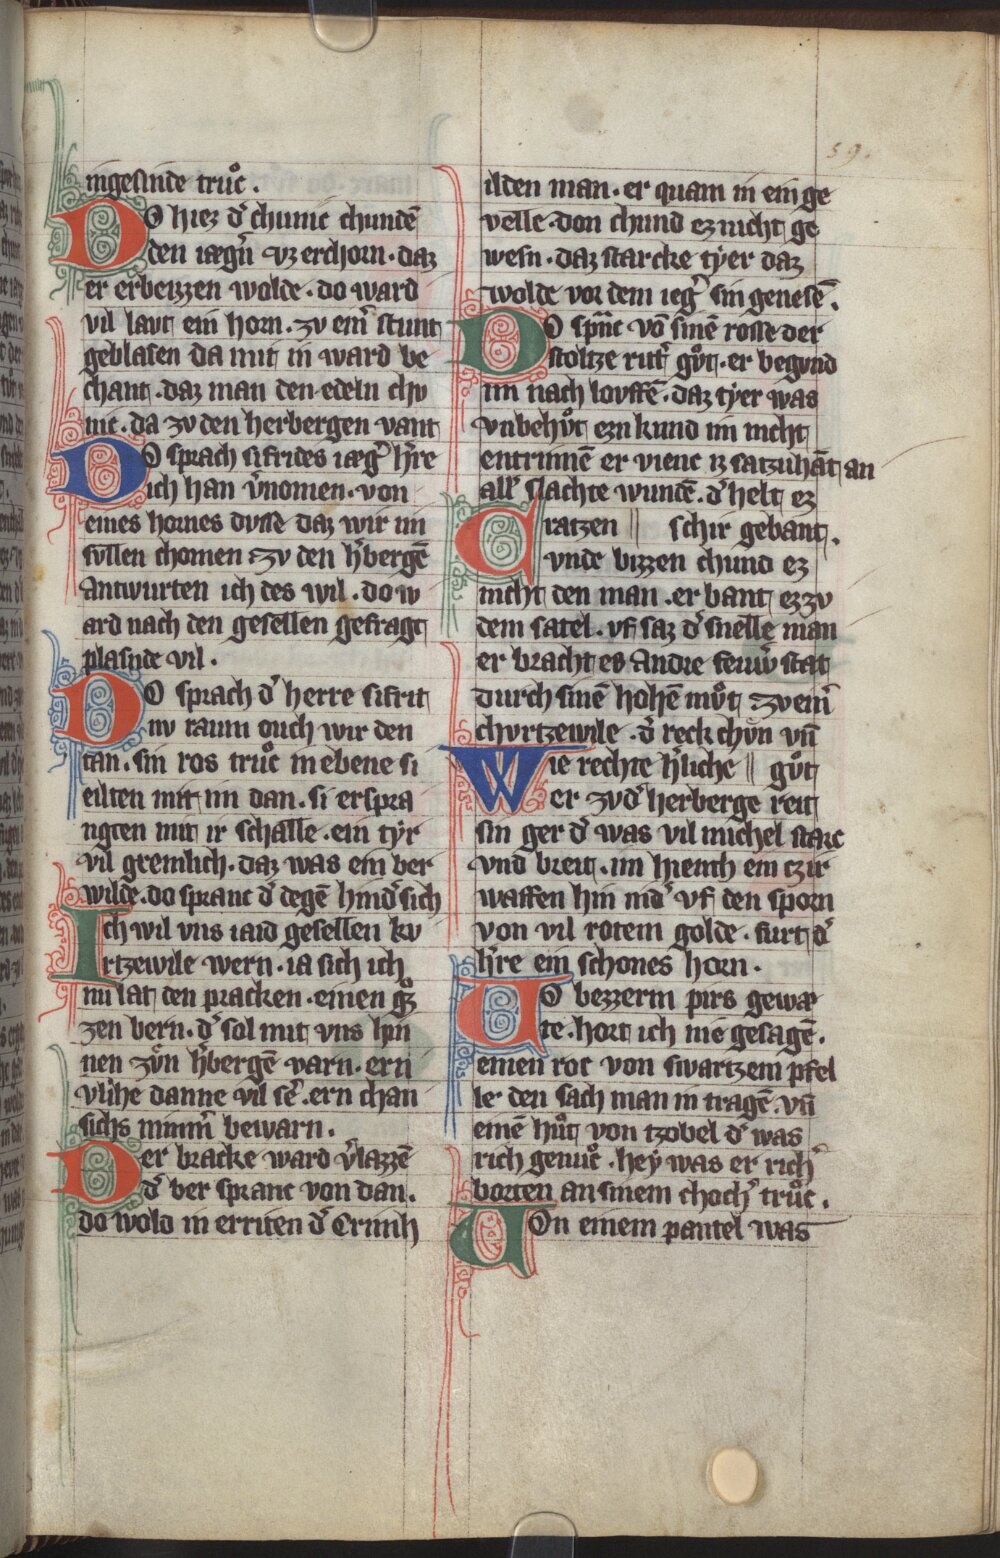 59.
ingesinde truͦc.
DO hiez d᷑ chunic chundē
den iæg᷑n vz erchorn. daz
er erbeizzen wolde. do ward
vil laut ein horn. zv em̄ stunt
geblasen da mit in ward be
chant. daz man den edeln chv
nic. da zv den herbergen vant
DO sprach sifrides iæg᷑ h᷑re
ich han v᷑nomen. von
eines hornes dusse daz wir im
sullen chomen zv den h᷑bergē
Antwurten ich des wil. do w
ard nach den gesellen gefragt
plasnde vil.
DO sprach d᷑ herre sifrit
nv raum ouch wir den
tan. sin ros truͦc in ebene si
eilten mit im dan. si erspra
ngten mit ir schalle. ein tyr
vil gremlich. daz was ein ber
wilde. do spranc d᷑ degē hind᷑ sich
Ich wil vns iaid gesellen ku
rtzewile wern. ia sich ich
nu lat den pracken. einen gͦz
zen bern. d᷑ sol mit vns hin
nen zuͦn h᷑bergē varn. ern
vlihe danne vil sē. ern chan
sichs nim̄ bewarn.
Der bracke ward v᷑lazzē
d᷑ ber spranc von dan.
do wold in erriten d᷑ Crimh
ilden man. er quam in ein ge
velle. don chund ez nicht ge
wesn. daz starcke tyer daz
wolde vor dem ieg᷑ sin genesē.
DO spͣnc vō sinē rosse der
stoltze rit᷑ guͦt. er begvnd
im nach louffē. daz tyer was
vnbehuͦt ezn kund im nicht
entrinnē er vienc iz satzuhāt an
all᷑ slachte wundē. d᷑ helt ez
Cratzen || schir gebant.
vnde bizzen chund ez
nicht den man. er bant ez zv
dem satel. vf saz d᷑ snelle man
er bracht es Andie feuw᷑ stat
durch sinē hohē muͦt zv em̄
chvrtzewile. d᷑ reck chuͦn vn̄
Wie rechte h᷑liche || guͦt
er zvd᷑ herberge reit
sin ger d᷑ was vil michel starc
vnd breit. im hiench ein czir
waffen hin nid᷑ vf den sporn
von vil rotem golde. furt d᷑
h᷑re ein schones horn.
VO bezzerm pirs gewæ
te. hort ich nie gesagē.
einen roc von swartzem pfel
le den sach man in tragē. vn̄
einē huͦt von tzobel d᷑ was
rich genuͦc. hey was er rich᷑
borten an sinem choch᷑ truͦc.
VOn einem pantel was